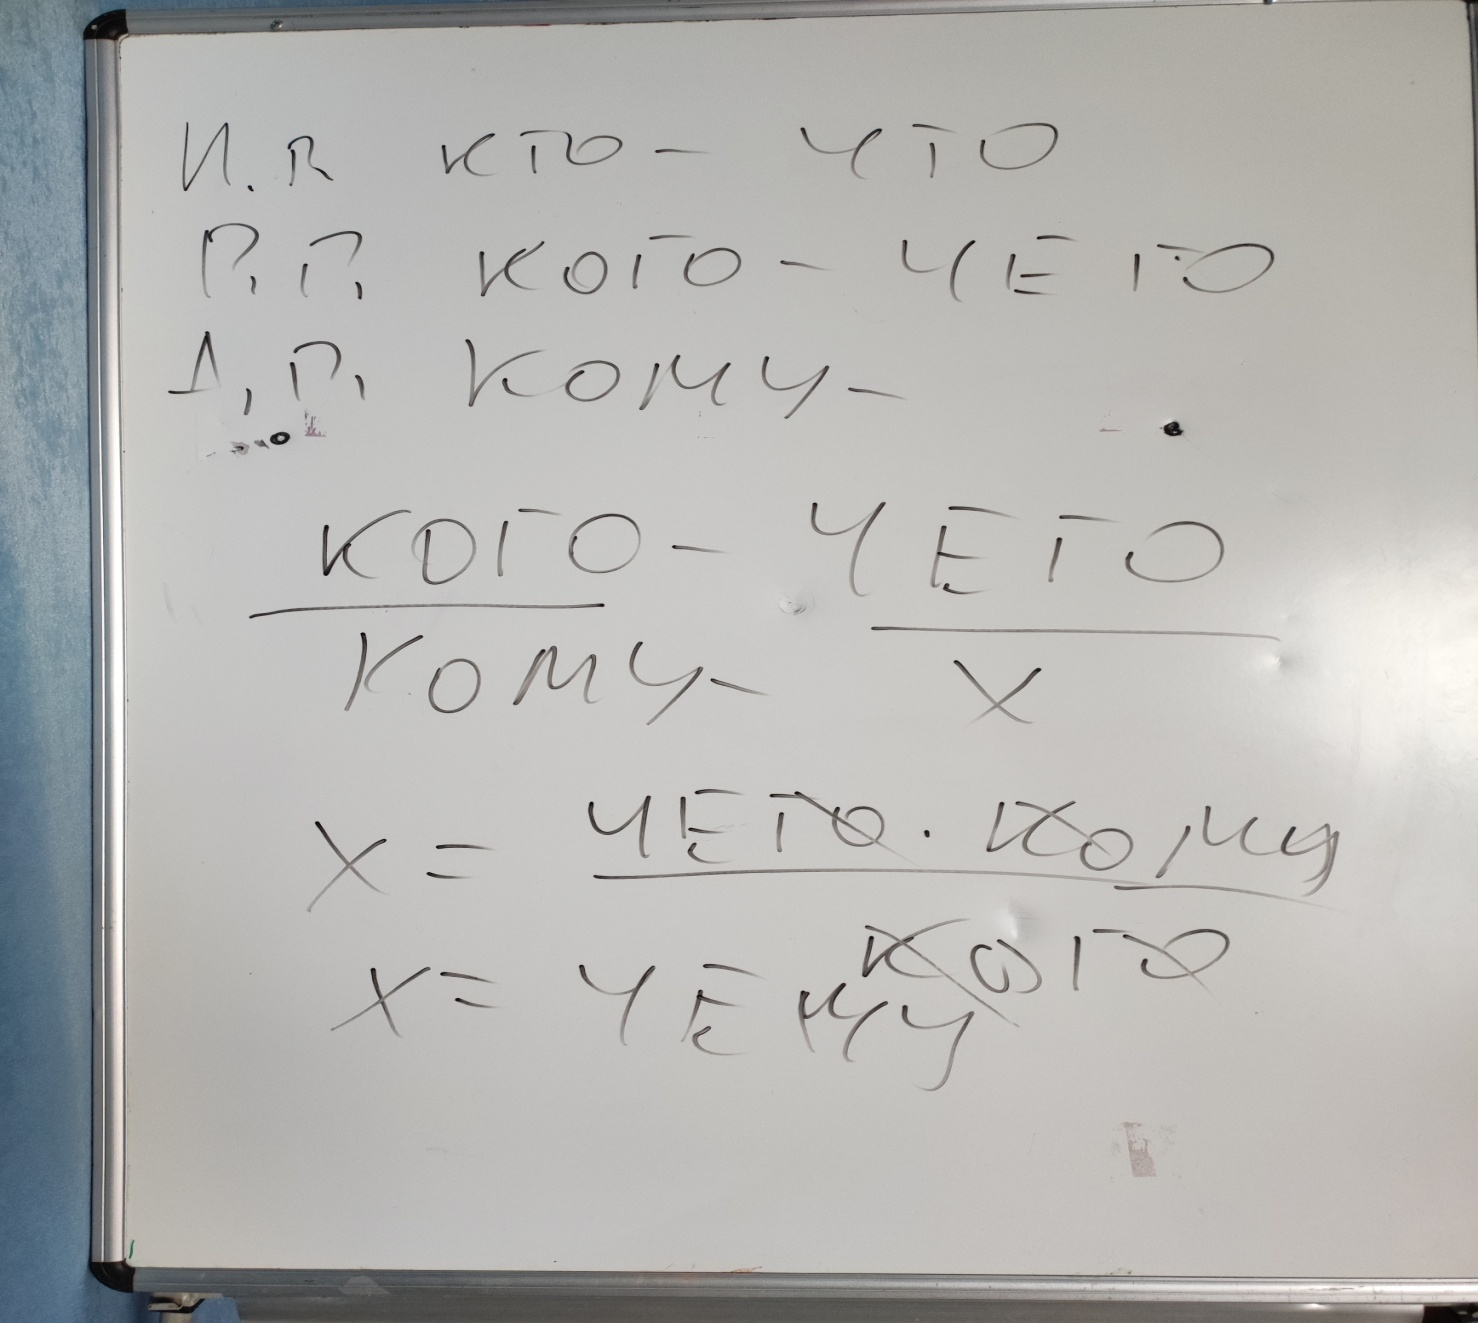 И.П КТО - ЧТО
Р.П. КОГО - ЧЕГО
Д.П. КОМУ -
КОГО - ЧЕГО
КОМУ - X
X = ЧЕГО · КОМУ
КОГО
X = ЧЕМУ